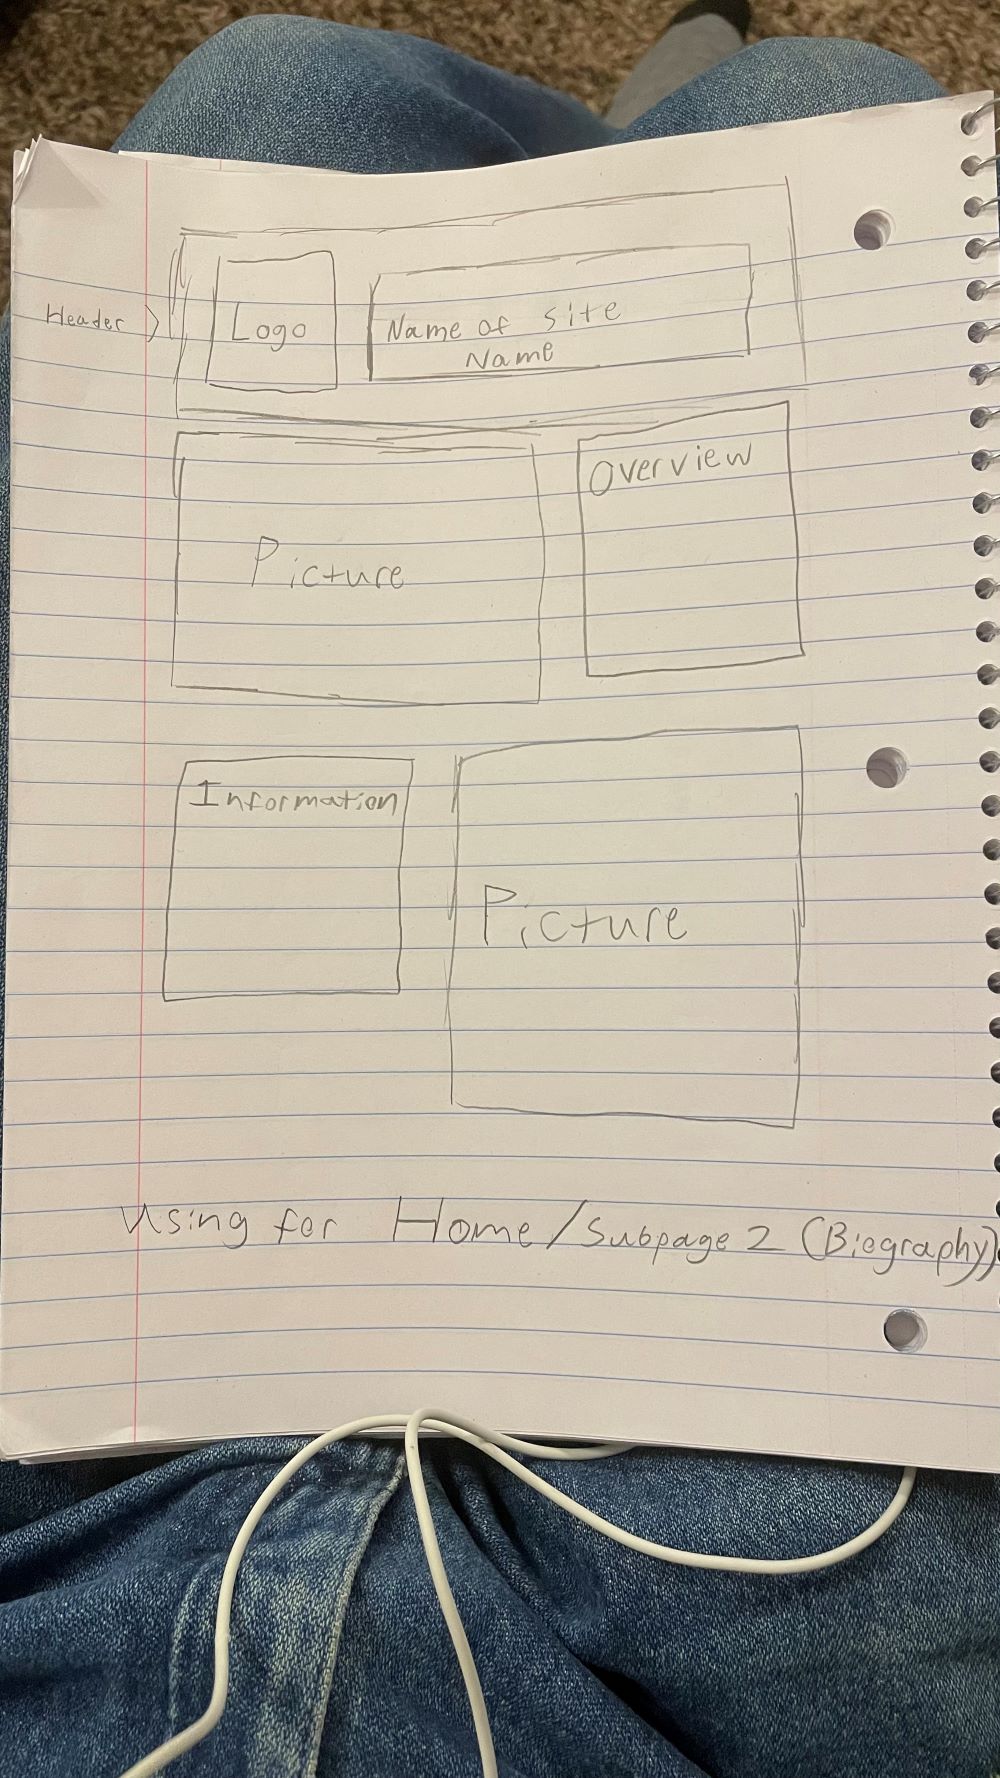 Header
Logo
Name of site
Name
Picture
Overview
Information
Picture
Using for Home/Subpage 2 (Biography)